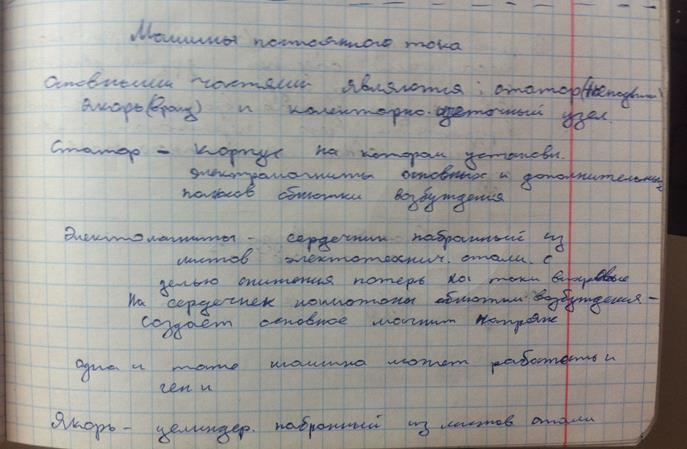 Машины постоянного тока
Основными частями являются: статор(неподвиж)
якорь(вращ) и колекторно-щеточный узел.
Статор – корпус на котором установл.
электромагниты основных и дополнительных
полюсов обмотки возбуждения
Электомагниты – сердечник набранный из
листов электотехнич. стали с
целью снижения потерь на токи вихровые
На сердечнек намотоны обмотки возбуждения –
создаёт основное магнит напряж
одна и таже машина может работать и
ген и
Якорь – целиндер. набранный из листов стали